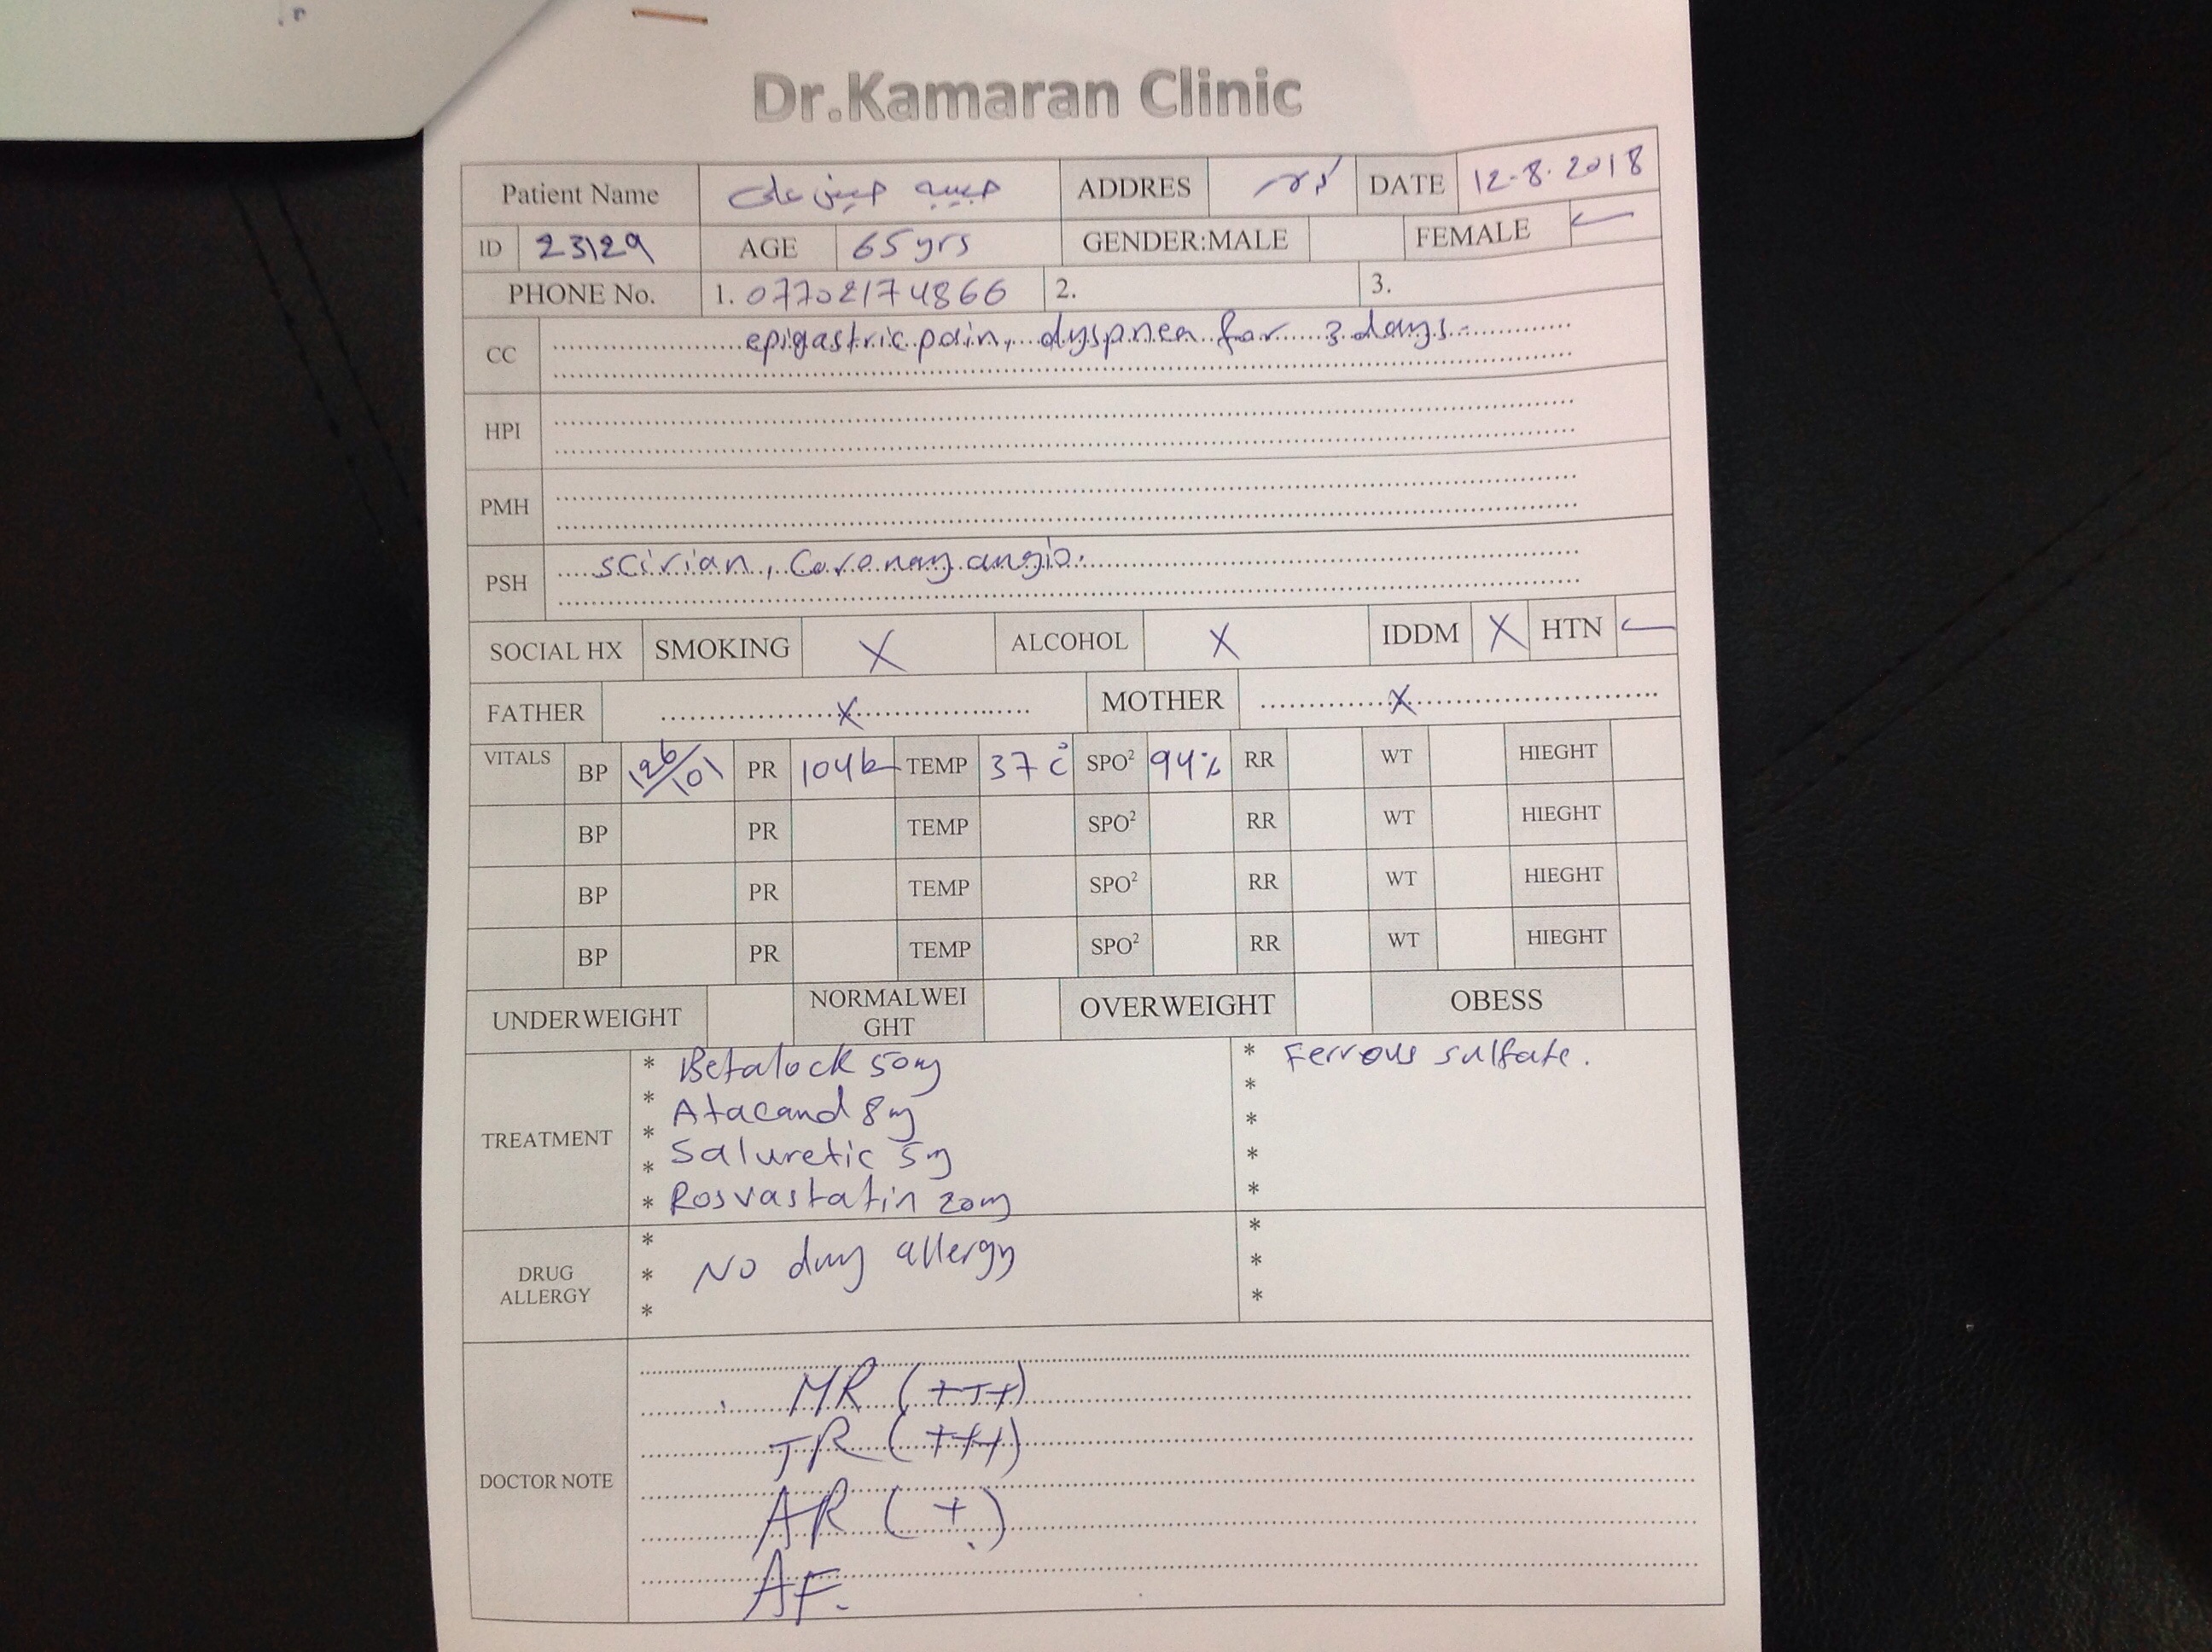 Dr.Kamaran Clinic
Patient Name حبيبه حسين علی ADDRES DATE 12-8-2018
ID 23129 AGE 65 yrs GENDER:MALE FEMALE
PHONE No. 1. 07702174866 2. 3.
CC epigastric pain, dyspnea for 3 days.
HPI
PMH
PSH scirian, Coronary angio.
SOCIAL HX SMOKING X ALCOHOL X IDDM X HTN
FATHER X MOTHER X
VITALS BP 126/101 PR 104b TEMP 37 c° SPO² 94% RR WT HIEGHT
BP PR TEMP SPO² RR WT HIEGHT
BP PR TEMP SPO² RR WT HIEGHT
BP PR TEMP SPO² RR WT HIEGHT
UNDERWEIGHT NORMALWEI
GHT OVERWEIGHT OBESS
TREATMENT
* Betalock 50mg
* Atacand 8mg
* Saluretic 5mg
* Rosvastatin 20mg
* Ferrous sulfate.
DRUG
ALLERGY
No drug allergy
DOCTOR NOTE
MR (+++)
TR (+++)
AR (+)
AF.